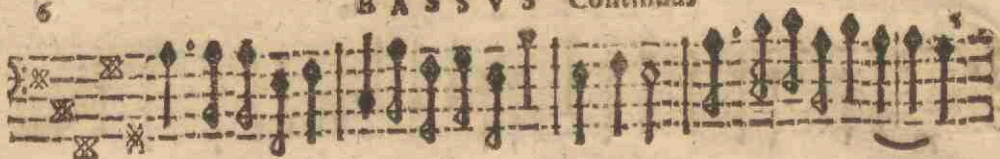 6 BASSVS Continuus